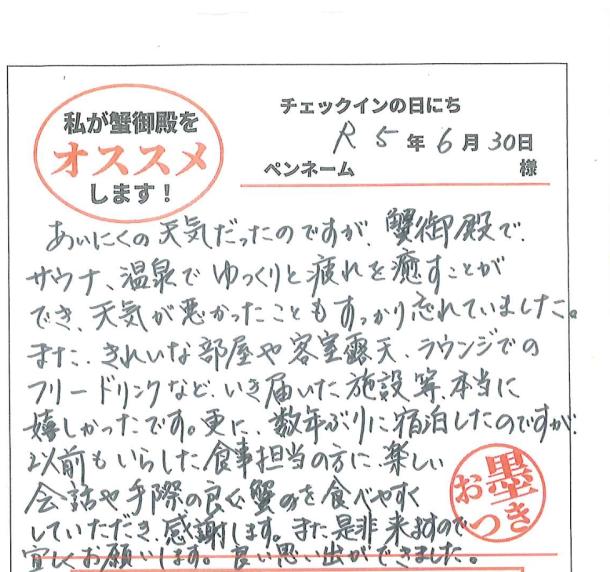 私が蟹御殿を
オススメ
します！
チェックインの日にち
R 5 年 6 月 30日
ペンネーム 様
あいにくの天気だったのですが、蟹御殿で、
サウナ、温泉でゆっくりと疲れを癒すことが
でき、天気が悪かったこともすっかり忘れていました。
また、きれいな部屋や客室露天、ラウンジでの
フリードリンクなど、いき届いた施設等、本当に
嬉しかったです。更に、数年ぶりに宿泊したのですが、
以前もいらした食事担当の方に、楽しい
会話や手際の良く蟹のを食べやすく
していただき、感謝します。また是非来ますので
宜しくお願いします。良い思い出ができました。
お墨つき